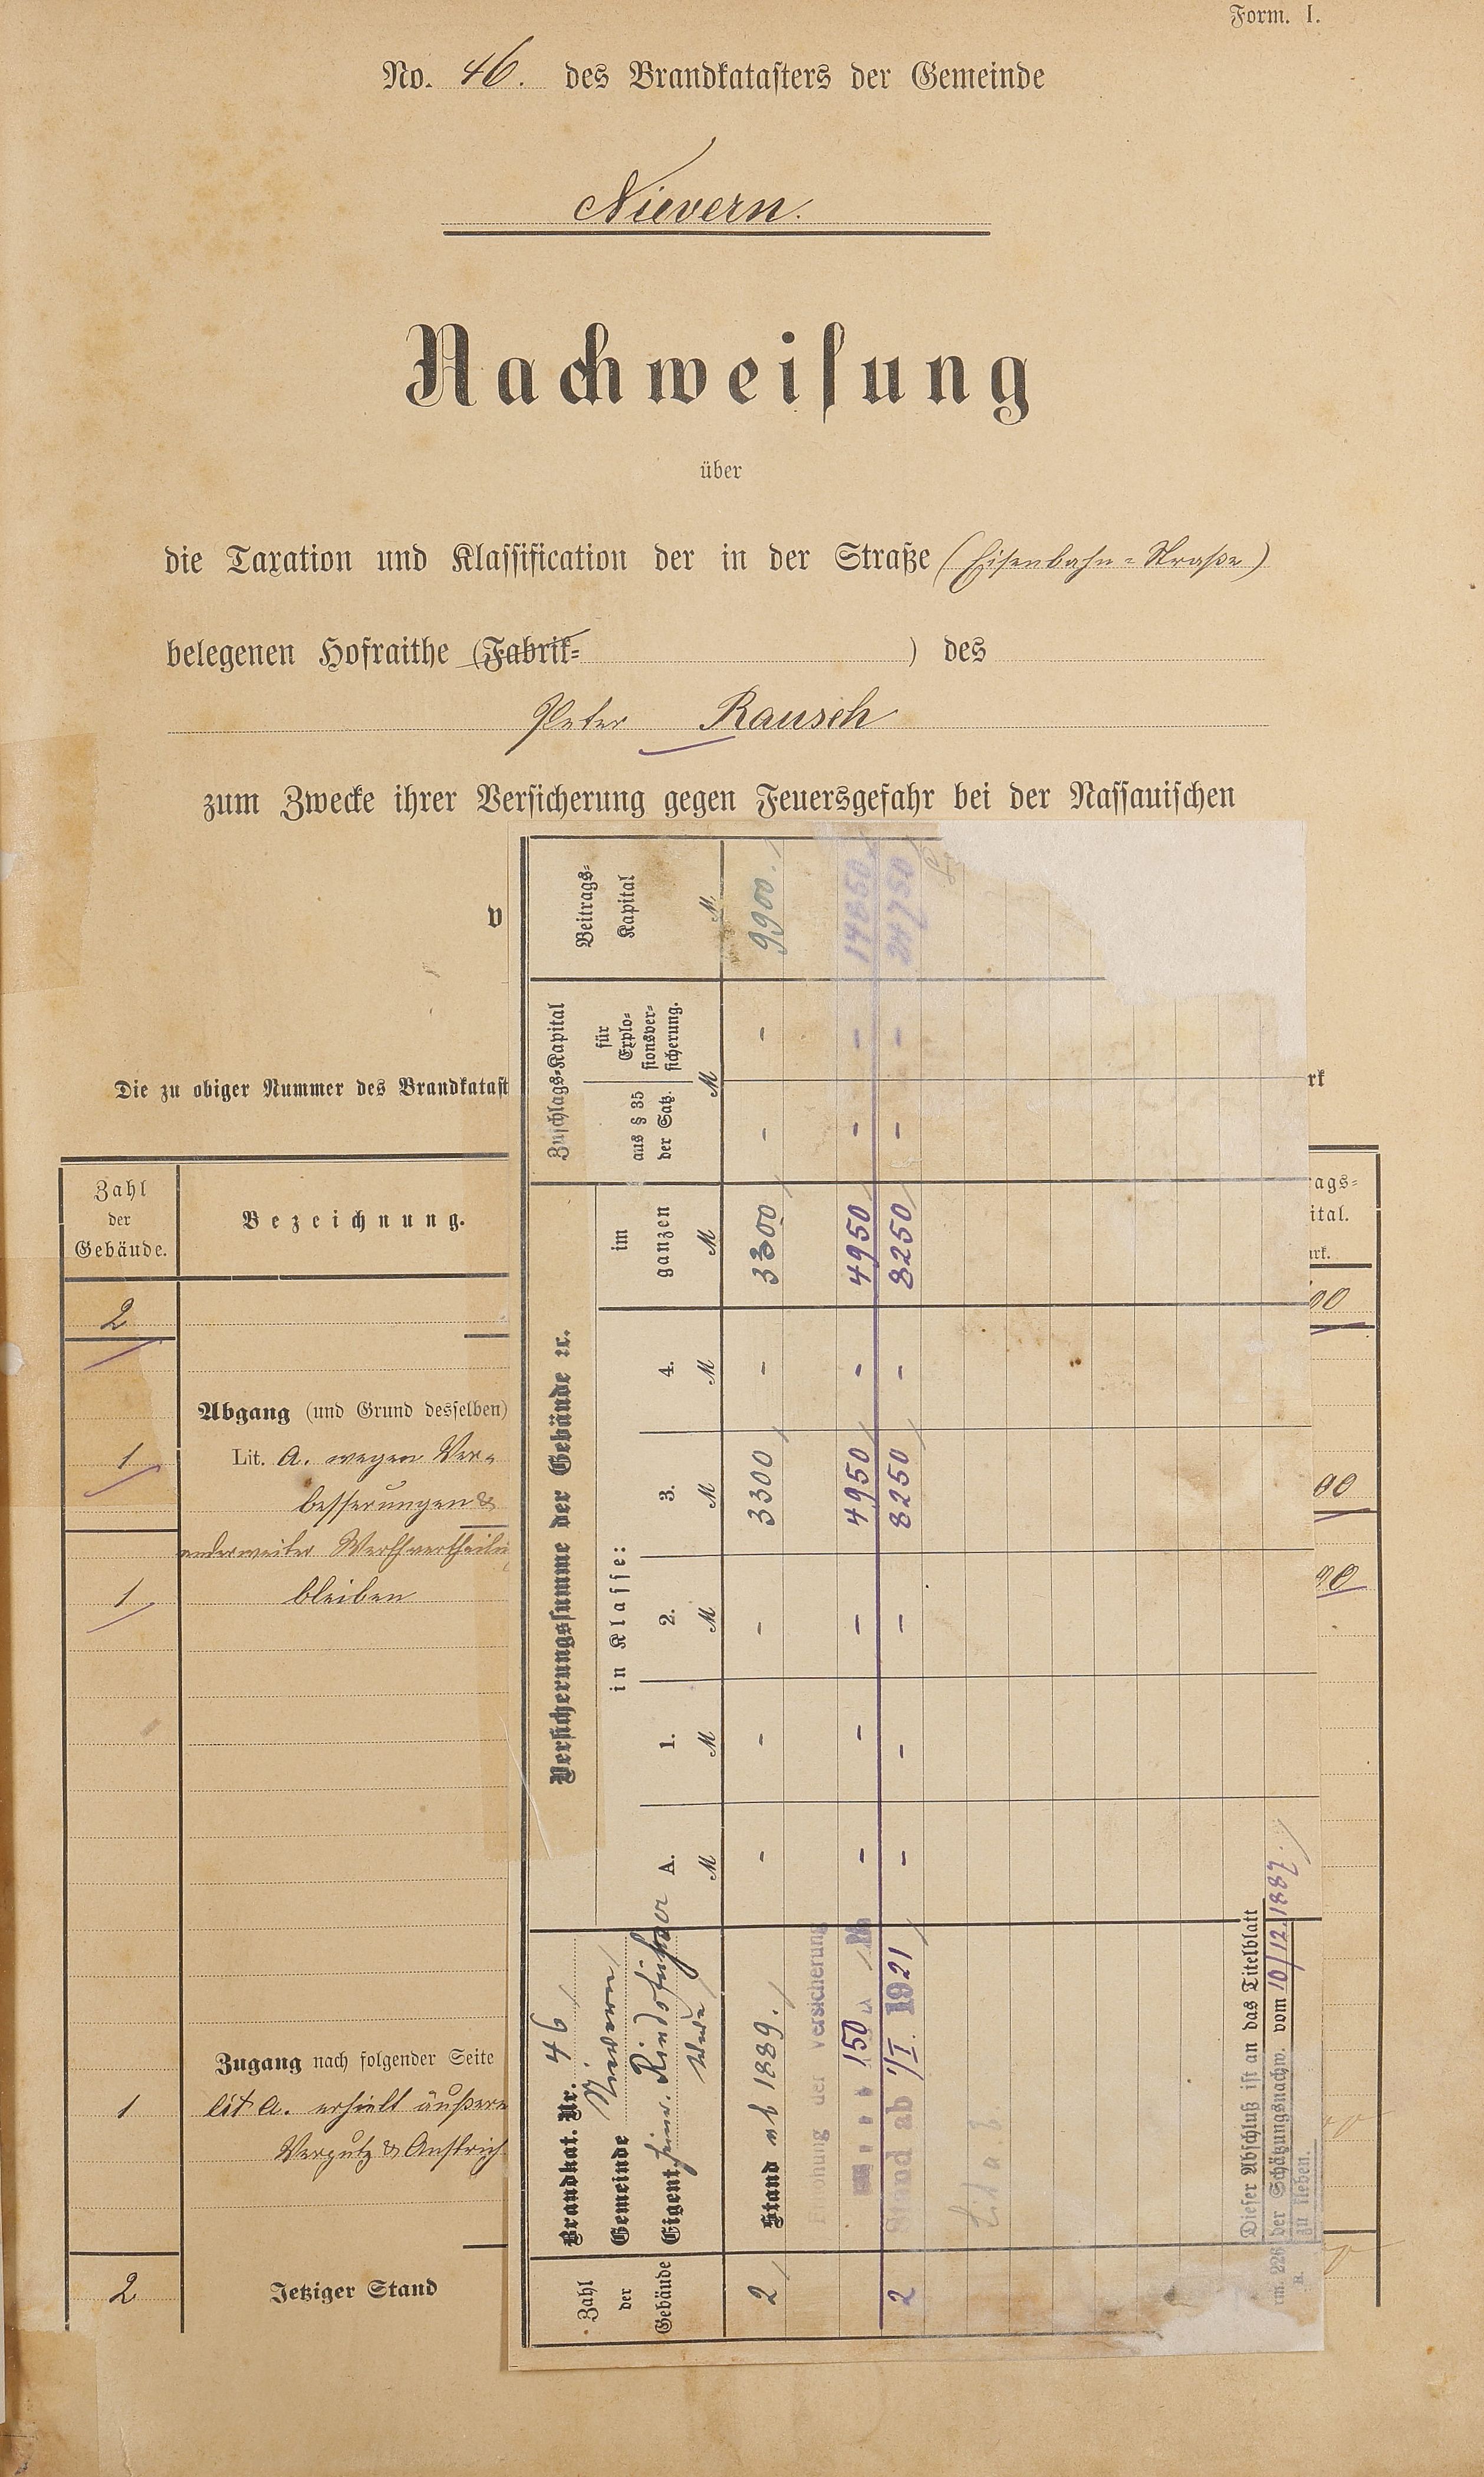 Form. I.
No. 46. des Brandkatasters der Gemeinde
Nievern.
Nachweisung
über
die Taxation und Klassification der in der Straße (Eisenbahn-Straße)
belegenen Hofraithe (Fabrik- ) des
Peter Rausch
zum Zwecke ihrer Versicherung gegen Feuersgefahr bei der Nassauischen
v
Die zu obiger Nummer des Brandkatast
rk
Zahl der Gebäude.
Bezeichnung.
rags-
ital.
rk.
2
00
Abgang (und Grund desselben)
1 Lit. A. wegen Ver-
besserungen &
00
anderweiter Werthvertheilu
1 bleiben
00
Zugang nach folgender Seite
1 Lit A. erhielt äußere
Verputz & Anstrich
2 Jetziger Stand
Zahl der Gebäude
Brandkat. Nr. 46
Gemeinde Nievern
Eigent. Heinr.
Versicherungssumme der Gebäude ec.
in Klasse:
A. M
1. M
2. M
3. M
4. M
im ganzen M
Zuschlags-Kapital
aus § 35 der Satz.
für Explosionsver-
sicherung.
M
Beitrags-
Kapital
M.
2 Stand ab 1889. - - - 3300 - 3300 - - 9900.
Erhöhung der Versicherung
150 - - - 4950 - 4950 - - 14850
2 Stand ab 1/I. 1921 - - - 8250 - 8250 - - 24750
Dieser Abschluß ist an das Titelblatt
der Schätzungsnachw. vom 10/12. 1887.
zu kleben.
rm. 226